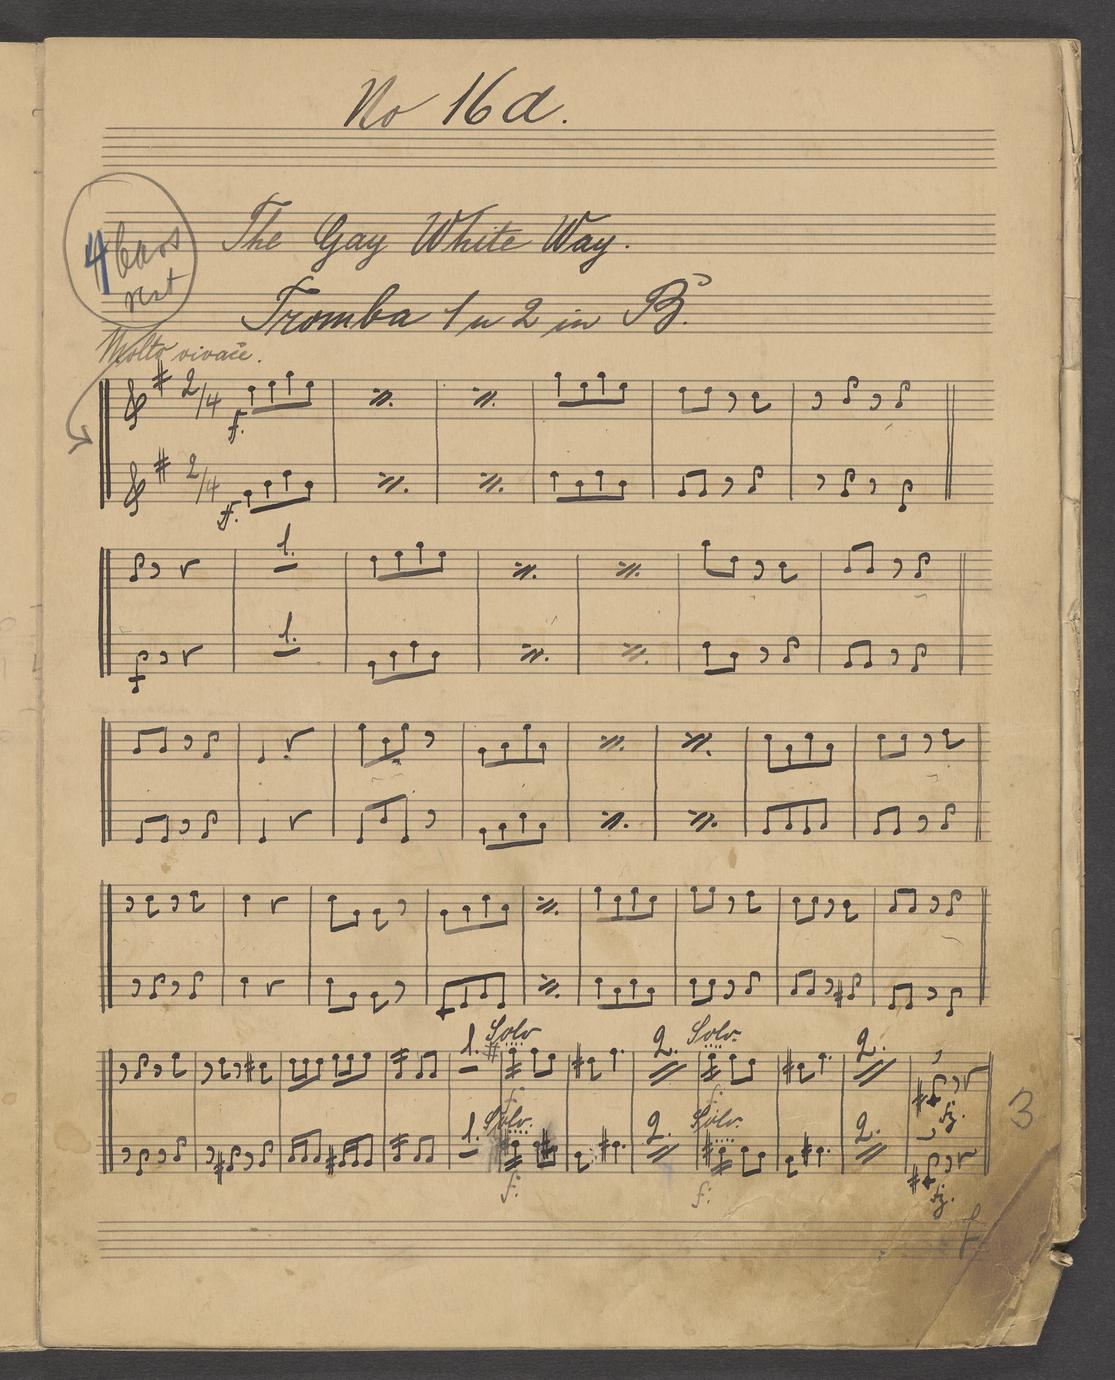 No 16d.
The Gay White Way.
4 bars
rest
Tromba 1 u 2 in B.
Molto vivace.
2/4
f.
2/4
f.
1.
1.
1. Solo
2. Solo.
2.
f
f
fz.
3
1. Solo.
2. Solo.
2.
f:
f:
fz.